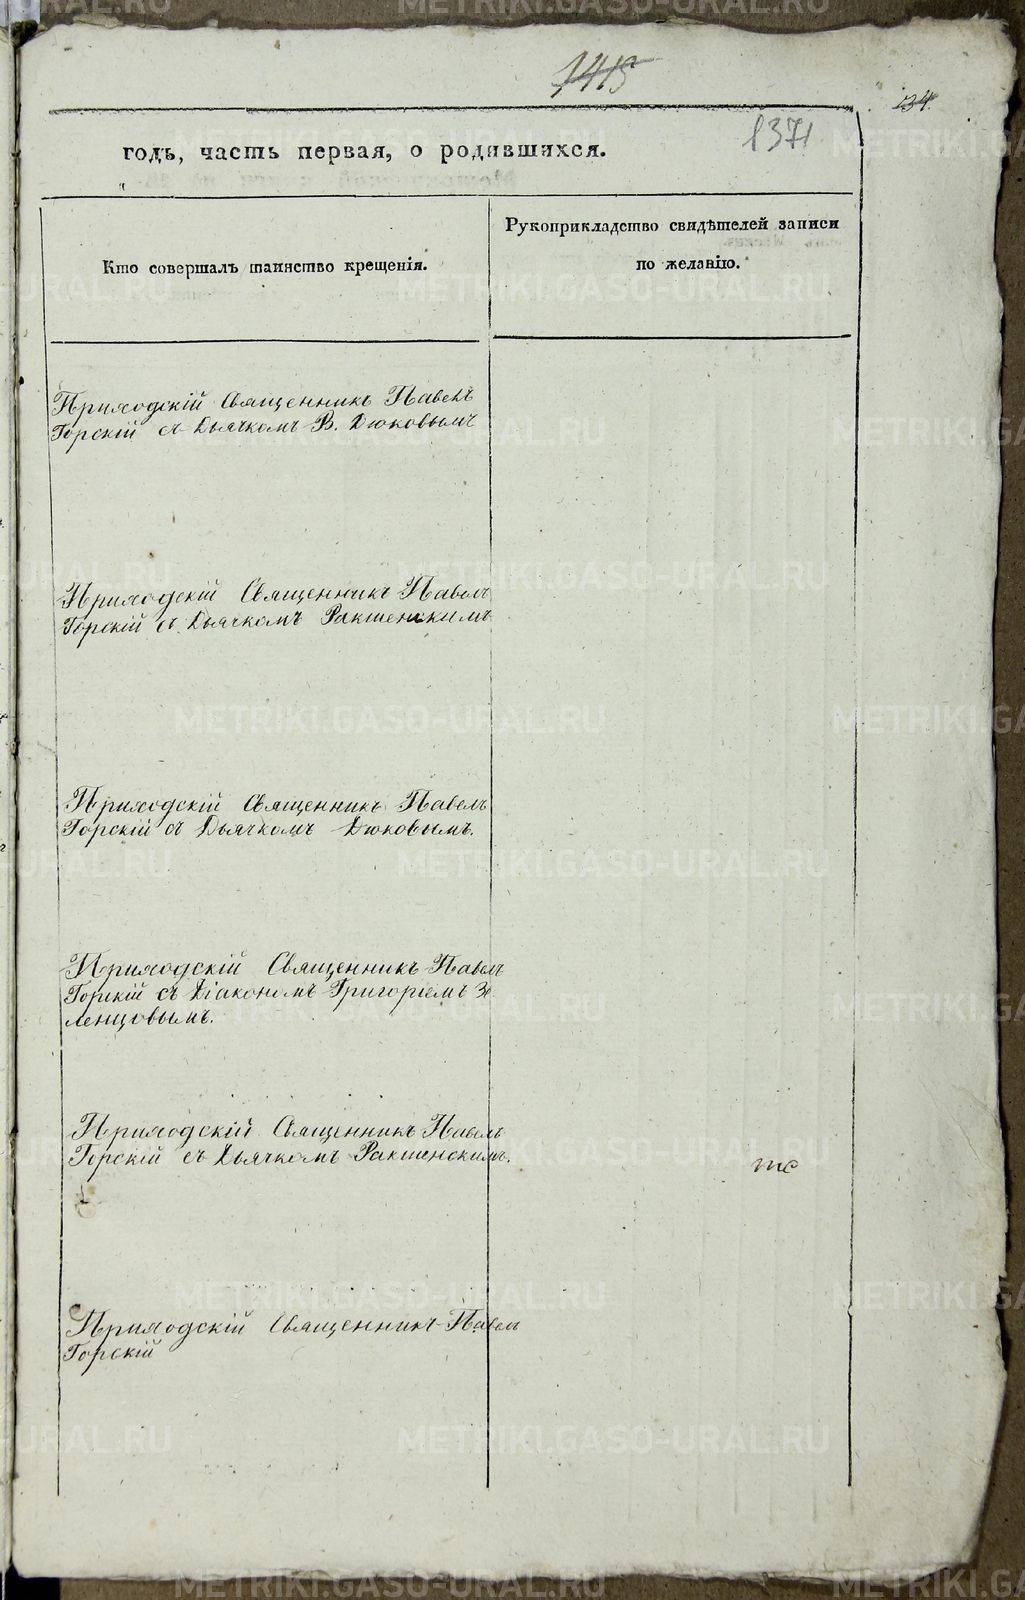 1415
134.
1371
годъ, часть первая, о родившихся.
Кто совершалъ таинство крещенія.
Рукоприкладство свидѣтелей записи
по желанію.
Приходскій Священникъ Павелъ
Горскій съ Дьячкомъ В. Дюковымъ
Приходскій Священникъ Павелъ
Горскій съ Дьячкомъ Ракшенскимъ
Приходскій Священникъ Павелъ
Горскій съ Дьячкомъ Дюковымъ.
Приходскій Священникъ Павелъ
Горскій съ Діакономъ Григоріемъ Зе
ленцовымъ.
Приходскій Священникъ Павелъ
Горскій съ Дьячкомъ Ракшенскимъ.
Приходскій Священникъ Павелъ
Горскій
METRIKI.GASO-URAL.RU